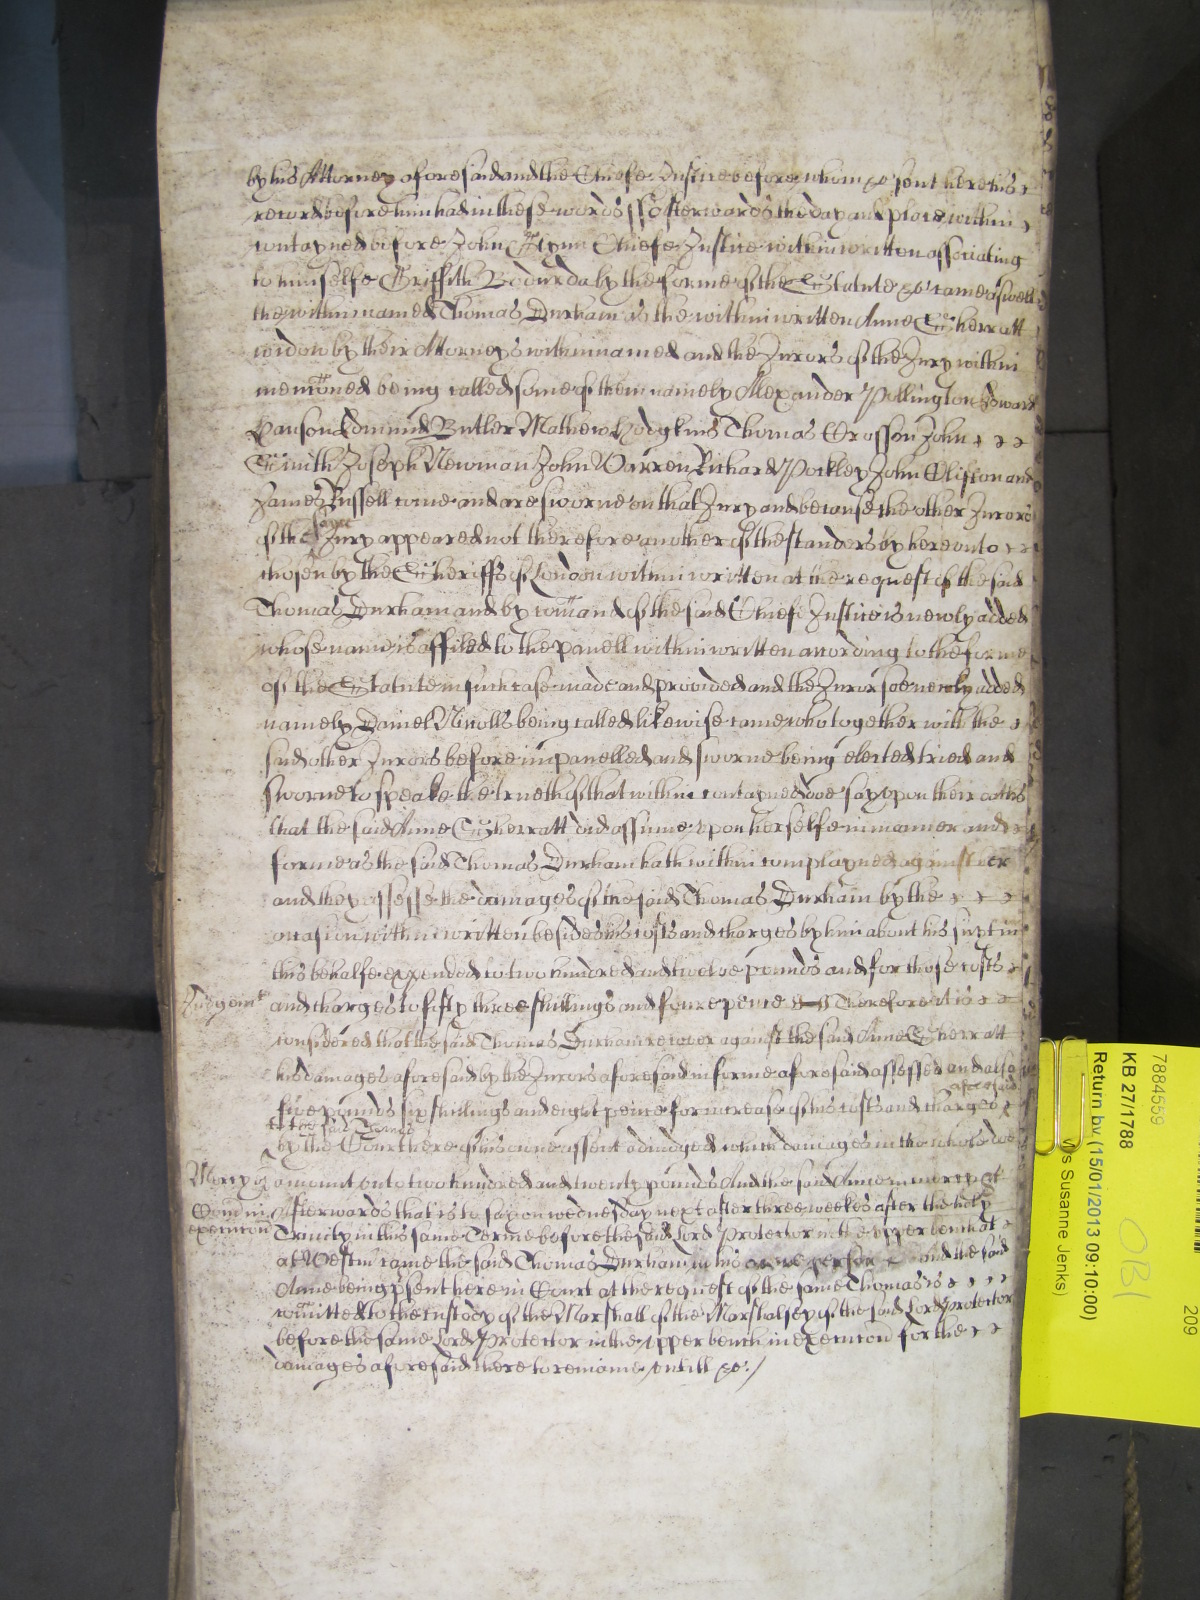 by his Attorney aforesaid and the Chiefe Justice before whom &c sent here his
record before him had in these words ss Afterwards the day and place within
contayned before John Glynn Chiefe Justice within written associating
to himselfe Griffith Bodurda by the forme of the Statute &c came aswell
the within named Thomas Durham as the within written Anne Sherratt
widow by their Attorneys within named and the Jurors of the Jury within
menc̃oned being called some of them namely Alexander Pollington Edward
Hanson Edmund Butler Mathew Hodgkins Thomas Crosson John
Smith Joseph Newman John Warren Richard Pockley John Clifton and
James Russell come and are sworne on that Jury and because the other Jurors
of the same Jury appeared not therefore another of the standers by hereunto
chosen by the Sheriffs of London within written at the request of the said
Thomas Durham and by com̃and of the said Chiefe Justice is newly added
whose name is affiled to the panell within written according to the forme
of the Statute in such case made and provided and the Juror soe newly added
namely Daniel Nicolls being called likewise came who together with the
said other Jurors before impanelled and sworne being elected tried and
sworne to speake the trueth of that within contayned doe say upon their oathes
that the said Anne Sherratt did assume upon herselfe in manner and
forme as the said Thomas Durham hath within complayned against her
and they assesse the damages of the said Thomas Durham by the
occasion within written besides his costs and charges by him about his suyt in
this behalfe expended to two hundred and twelve pounds and for those costs
Judgem.t and charges to fifty three shillings and foure pence Therefore it is
considered that the said Thomas Durham recover against the said Anne Sherratt
his damages aforesaid by the Jurors aforesaid in forme aforesaid assessed and also
five pounds six shillings and eight pence for increase of his costs and charges aforesaid
to the said Thomas
by the Court here of his owne assent adiudged which damages in the whole doe
Mercy amount unto two hundred and twenty pounds And the said Anne in mercy &c
Com̃ in Afterwards that is to say on wednesday next after three weekes after the holy
execuc̃on Trinity in this same Terme before the said Lord Protector in the upper bench at
at Westm̃ came the said Thomas Durham in his owne person and the said
Anne being p̃sent here in Court at the request of the same Thomas is
com̃itted to the custody of the Marshall of the Marshalsey of the said Lord Protector
before the same Lord Protector in the upper bench in execuc̃on for the
damages aforesaid there to remaine untill &c./
7884559
KB 27/1788
Return by (15/01/2013 09:10:00)
s Susanne Jenks)
209
OB1